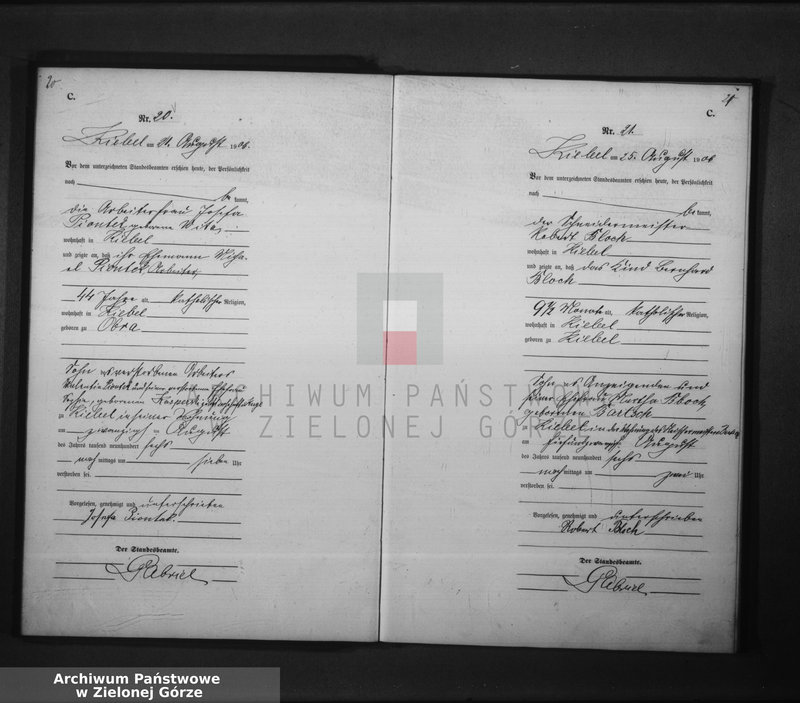 20
C.
Nr. 20.
Kiebel am 21. August 1906.
Vor dem unterzeichneten Standesbeamten erschien heute, der Persönlichkeit
nach
be kannt,
die Arbeiterfrau Josefa
Piontek geborene
wohnhaft in Kiebel
und zeigte an, daß ihr Ehemann Micha-
el Piontek, Arbeiter
44 Jahre alt, katholischer Religion,
wohnhaft in Kiebel
geboren zu Obra
Sohn des verstorbenen Arbeiters
Valentin Piontek und seiner verstorbenen Ehefrau
geborenen
zu Kiebel in seiner Wohnung
am zwanzigsten August
des Jahres tausend neunhundert sechs
nach mittags um sieben Uhr
verstorben sei.
Vorgelesen, genehmigt und unterschrieben
Josefa Piontek.
Der Standesbeamte.
Gabriel
21
C.
Nr. 21.
Kiebel am 25. August 1906
Vor dem unterzeichneten Standesbeamten erschien heute, der Persönlichkeit
nach
be kannt,
der Schneidermeister
Robert Bloch
wohnhaft in Kiebel
und zeigte an, daß das Kind Bernhard
Bloch
9½ Monate alt, katholischer Religion,
wohnhaft in Kiebel
geboren zu Kiebel
Sohn des Anzeigenden und
seiner Ehefrau Martha Bloch,
geborenen Bartsch
zu Kiebel in der Wohnung des
am fünfundzwanzigsten August
des Jahres tausend neunhundert sechs
nach mittags um zwei Uhr
verstorben sei.
Vorgelesen, genehmigt und unterschrieben
Robert Bloch
Der Standesbeamte.
Gabriel
ARCHIWUM PAŃSTWOWE
ZIELONEJ GÓRZE
Archiwum Państwowe
w Zielonej Górze